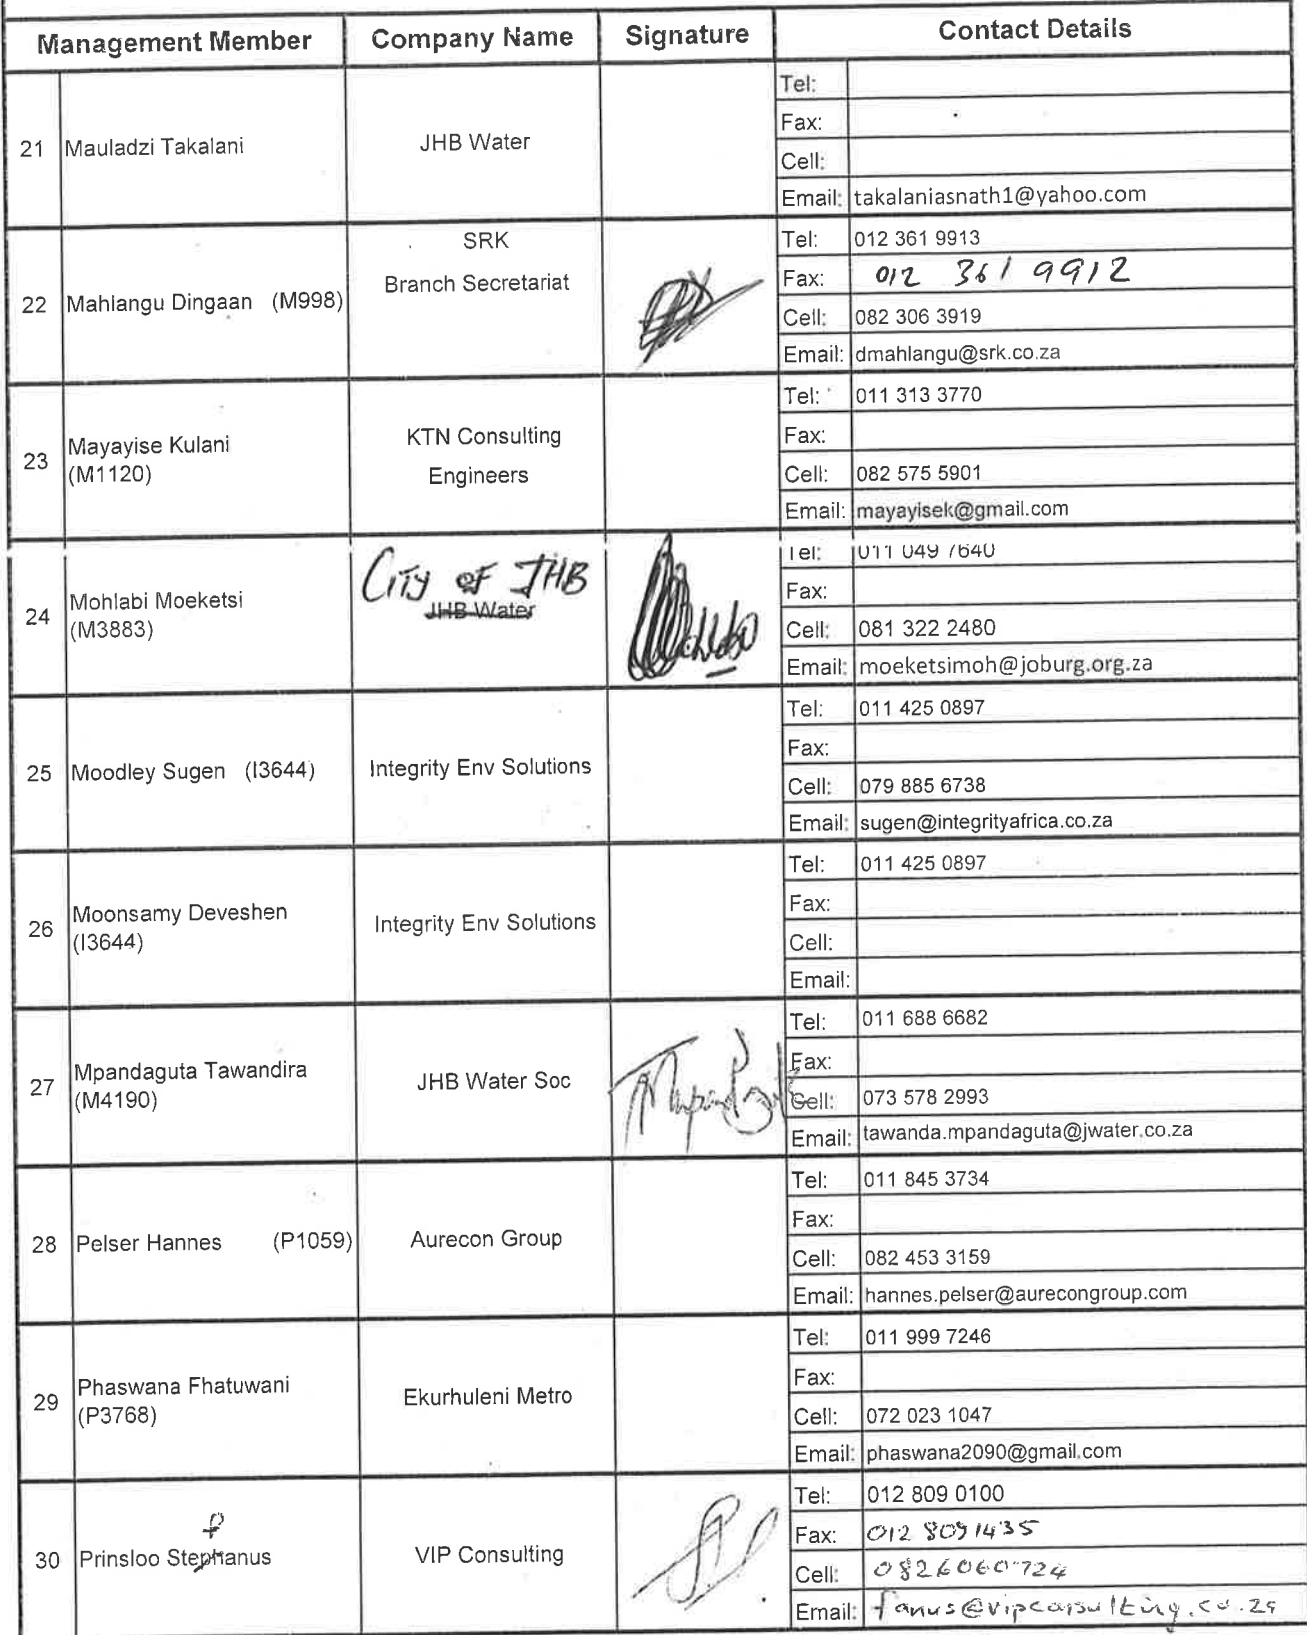 Management Member Company Name Signature Contact Details
21 Mauladzi Takalani JHB Water
Tel:
Fax:
Cell:
Email: takalaniasnath1@yahoo.com
22 Mahlangu Dingaan (M998)
SRK
Branch Secretariat
Tel: 012 361 9913
Fax: 012 361 9912
Cell: 082 306 3919
Email: dmahlangu@srk.co.za
23 Mayayise Kulani
(M1120)
KTN Consulting
Engineers
Tel: 011 313 3770
Fax:
Cell: 082 575 5901
Email: mayayisek@gmail.com
24 Mohlabi Moeketsi
(M3883)
CITY OF JHB
JHB Water
Tel: 011 049 7640
Fax:
Cell: 081 322 2480
Email: moeketsimoh@joburg.org.za
25 Moodley Sugen (I3644) Integrity Env Solutions
Tel: 011 425 0897
Fax:
Cell: 079 885 6738
Email: sugen@integrityafrica.co.za
26 Moonsamy Deveshen
(I3644)
Integrity Env Solutions
Tel: 011 425 0897
Fax:
Cell:
Email:
27 Mpandaguta Tawandira
(M4190)
JHB Water Soc
Tel: 011 688 6682
Fax:
Cell: 073 578 2993
Email: tawanda.mpandaguta@jwater.co.za
28 Pelser Hannes (P1059) Aurecon Group
Tel: 011 845 3734
Fax:
Cell: 082 453 3159
Email: hannes.pelser@aurecongroup.com
29 Phaswana Fhatuwani
(P3768)
Ekurhuleni Metro
Tel: 011 999 7246
Fax:
Cell: 072 023 1047
Email: phaswana2090@gmail.com
f
30 Prinsloo Stephanus VIP Consulting
Tel: 012 809 0100
Fax: 012 8091435
Cell: 0826060724
Email: fanus@vipconsulting.co.za